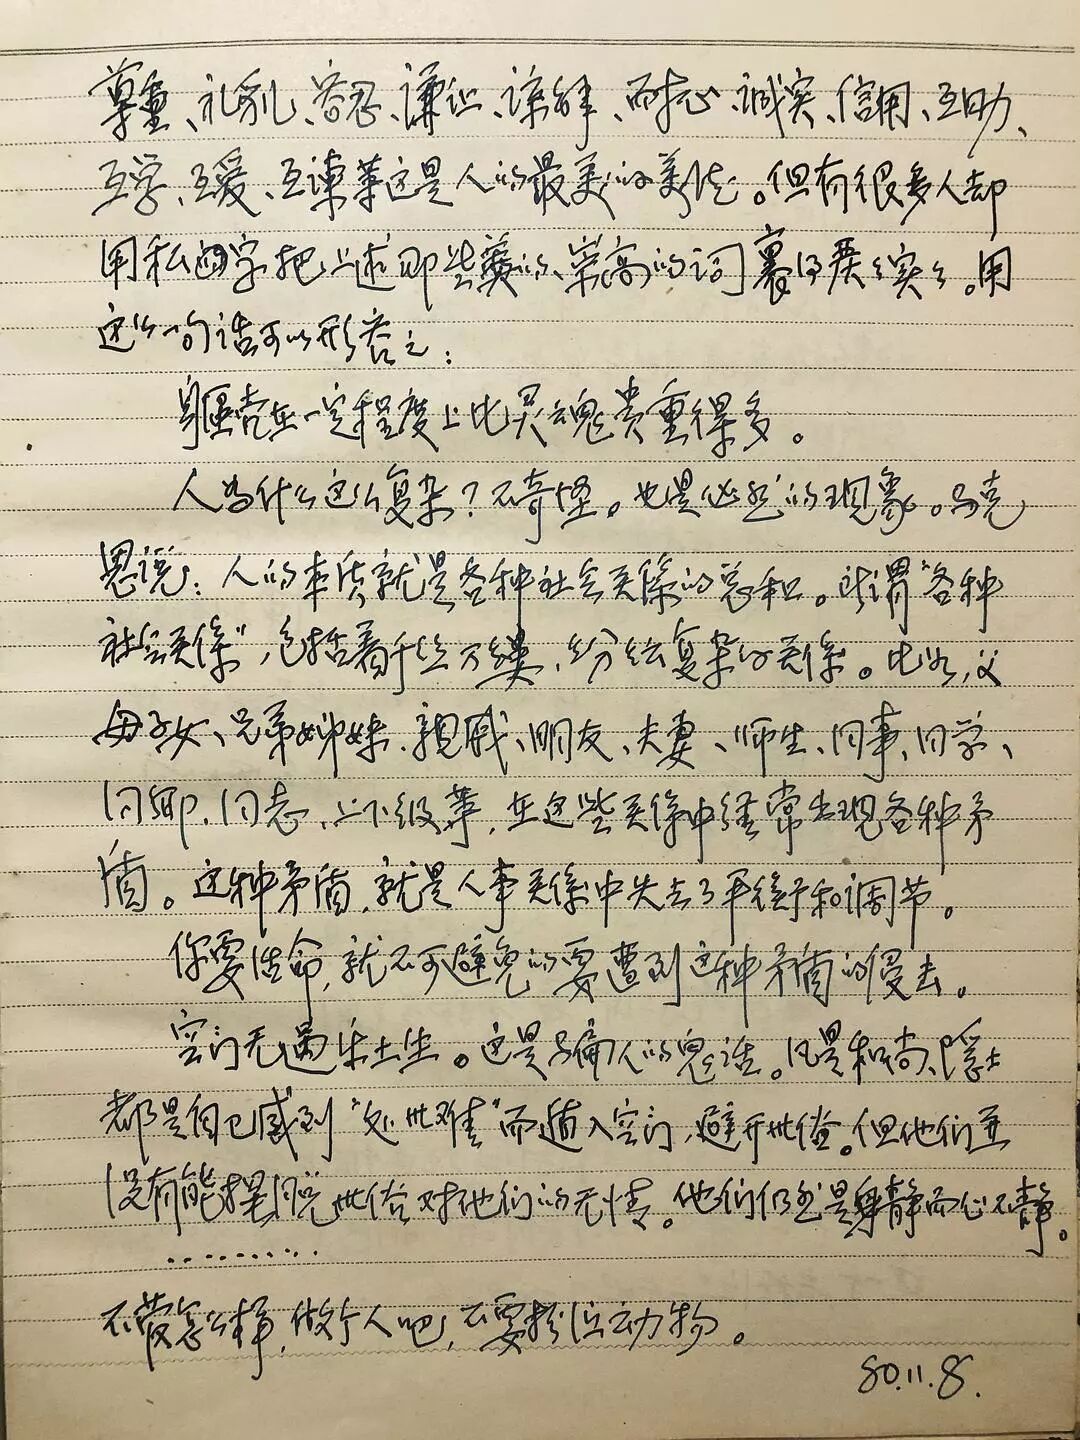 尊重、礼貌、容忍、谦让、谅解、耐心、诚实、信用、互助、
互学、互爱、互谏等这是人的最美的美德。但有很多人却
用私字把上述那些美的、崇高的词裹得严严实实。用
这么一句话可以形容之：
躯壳在一定程度上比灵魂贵重得多。
人为什么这么复杂？不奇怪。也是必然的现象。马克
思说：人的本质就是各种社会关係的总和。所谓“各种
社会关係”，包括着千丝万缕，纷纭复杂的关係。比如，父
母子女、兄弟姊妹、亲戚、朋友、夫妻、师生、同事、同学、
同乡、同志、上下级等，在这些关係中经常出现各种矛
盾。这种矛盾，就是人事关係中失去了平衡和调节。
你要活命，就不可避免的要遭到这种矛盾的侵去。
空门无遇乐土坐。这是骗人的鬼话。凡是和尚、隐士
都是自己感到“处世难”而遁入空门，避开世俗。但他们并
没有能摆脱世俗对他们的无情。他们仍然是身静而心不静。
..........
不管怎么样，做个人吧，不要拟位动物。
80.11.8.